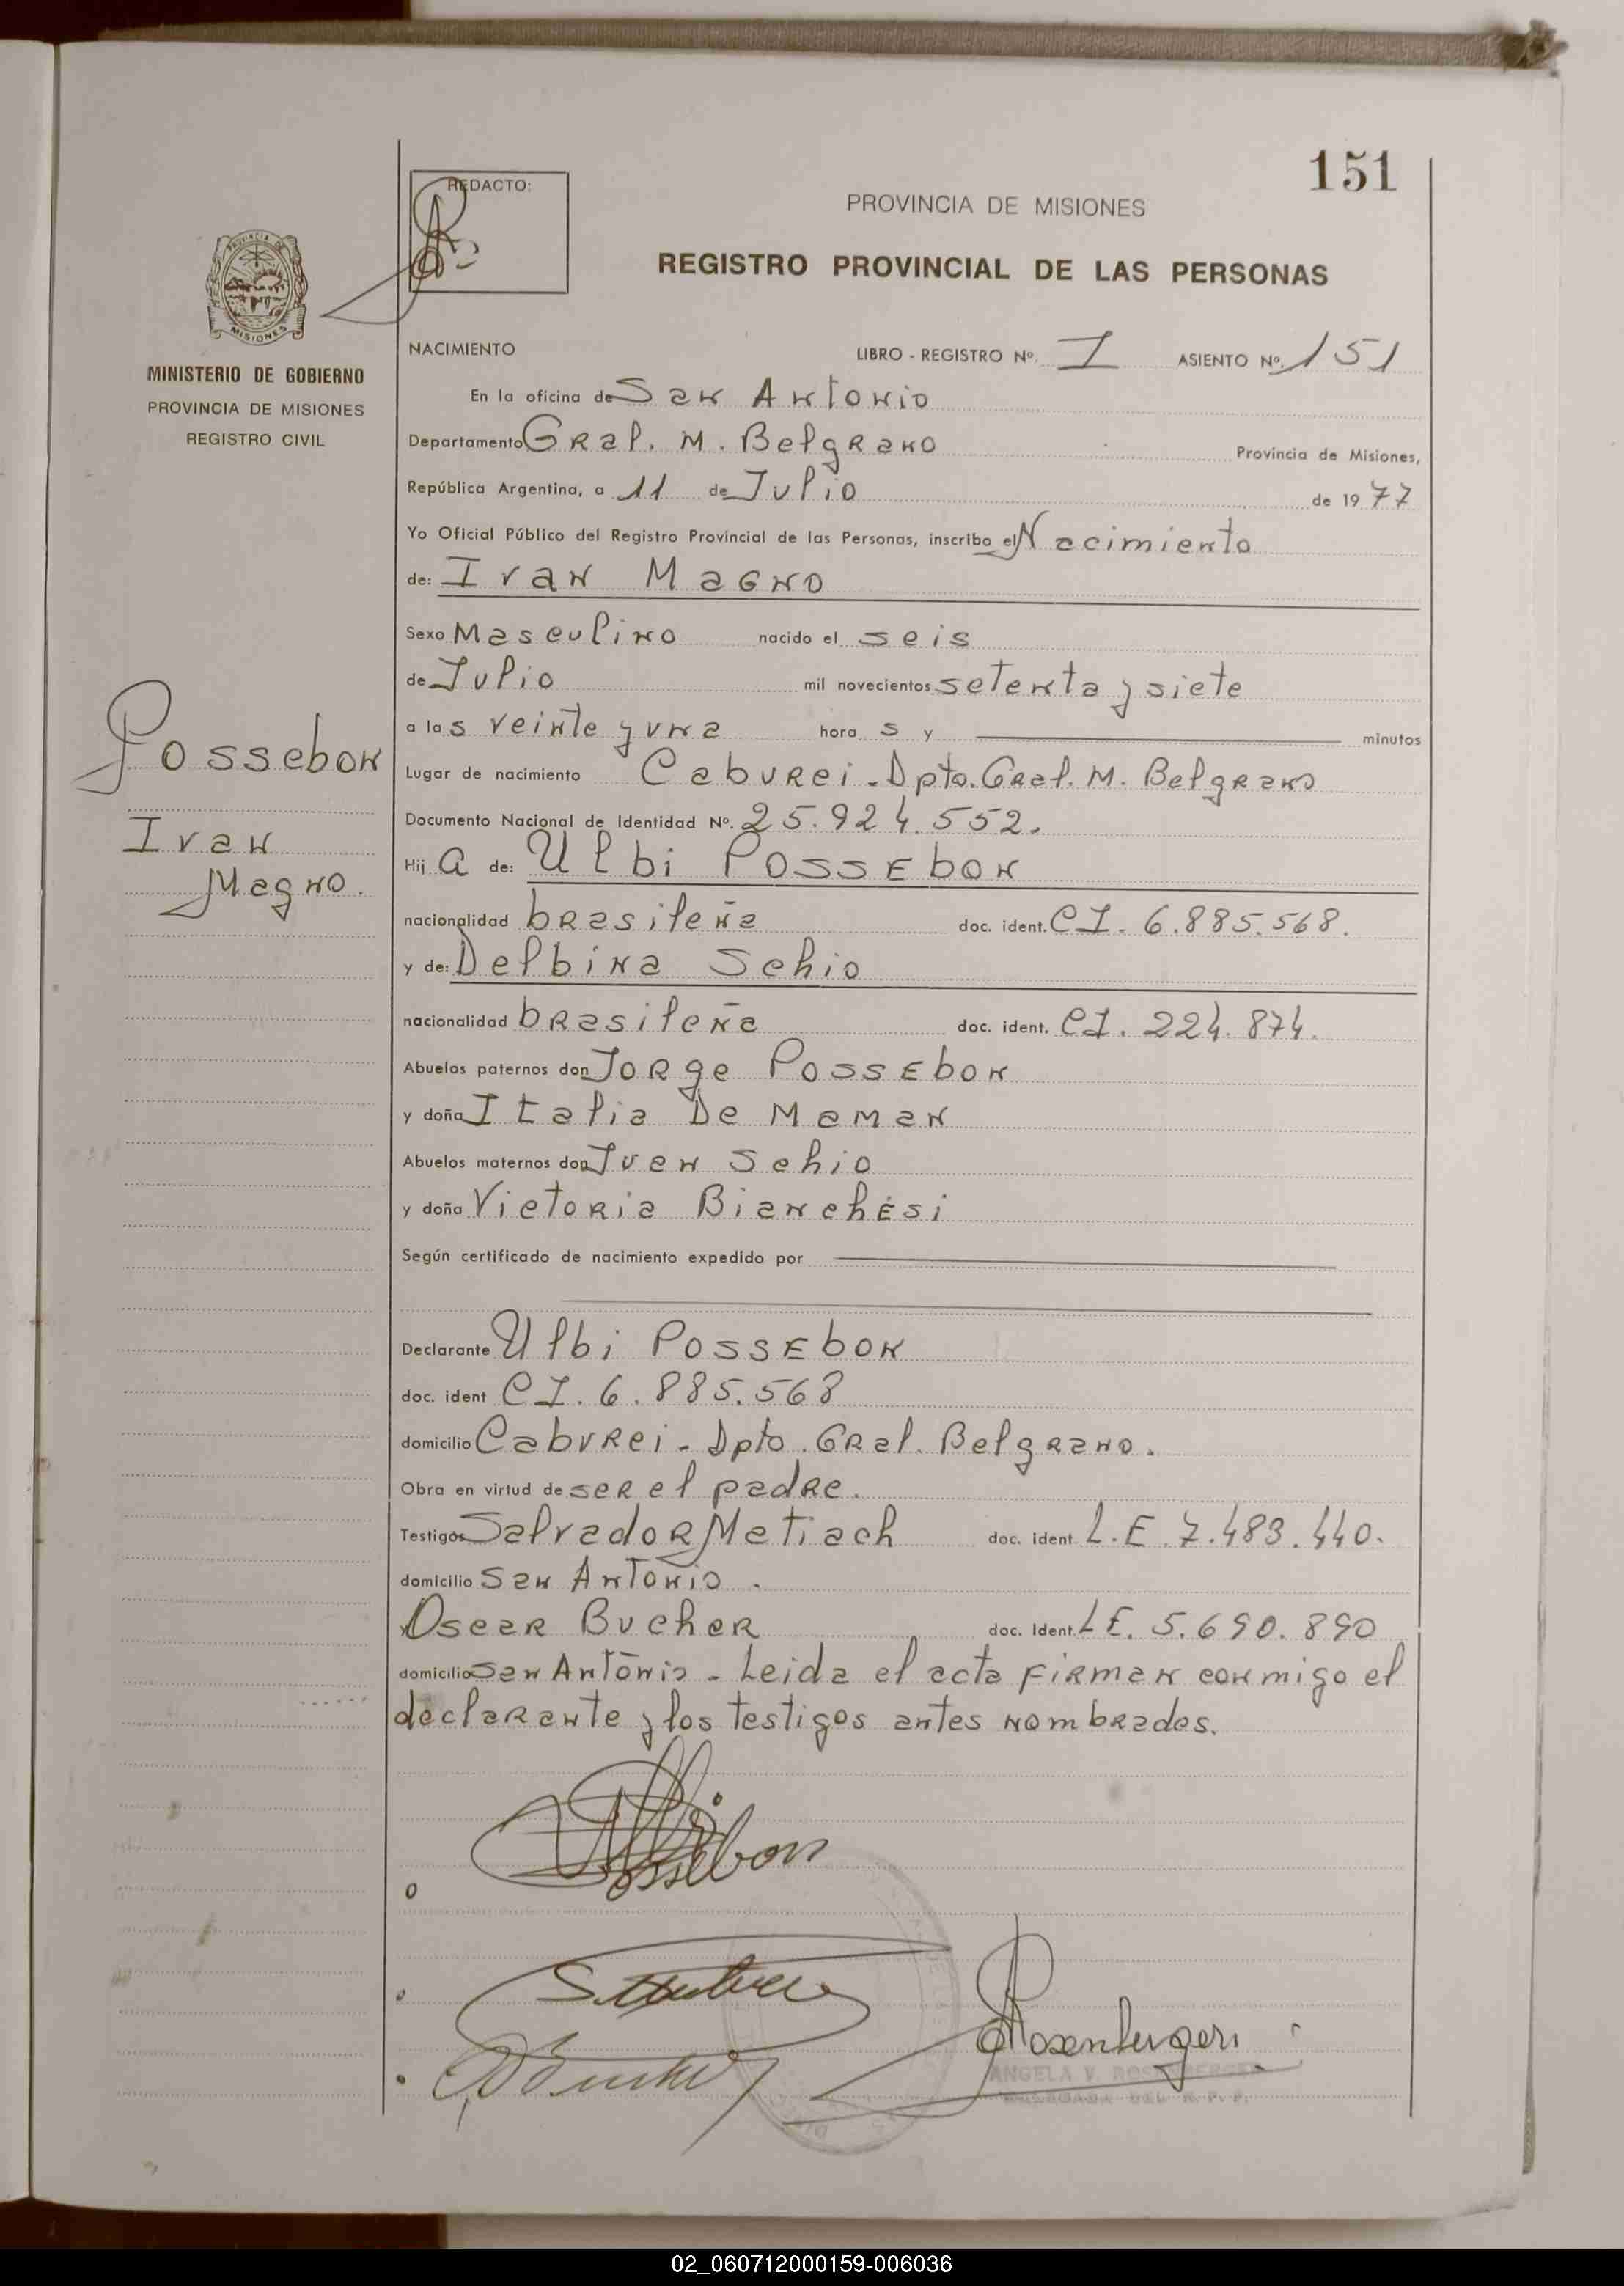 151
REDACTO:
PROVINCIA DE MISIONES
REGISTRO PROVINCIAL DE LAS PERSONAS
PROVINCIA DE
MISIONES
MINISTERIO DE GOBIERNO
PROVINCIA DE MISIONES
REGISTRO CIVIL
NACIMIENTO LIBRO - REGISTRO Nº. I ASIENTO Nº. 151
En la oficina de San Antonio
Departamento Gral. M. Belgrano Provincia de Misiones,
República Argentina, a 11 de Julio de 1977
Yo Oficial Público del Registro Provincial de las Personas, inscribo el Nacimiento
de: Ivan Magno
Sexo Masculino nacido el seis
de Julio mil novecientos setenta y siete
a las veinte y una horas y minutos
Possebon
Ivan
Magno.
Lugar de nacimiento Caburei - Dpto. Gral. M. Belgrano
Documento Nacional de Identidad Nº. 25.924.552.
Hija de: Ulbi Possebon
nacionalidad brasileña doc. ident. CI. 6.885.568.
y de: Delbina Schio
nacionalidad brasileña doc. ident. CI. 224.874.
Abuelos paternos don Jorge Possebon
y doña Italia De Maman
Abuelos maternos don Juan Schio
y doña Victoria Bianchesi
Según certificado de nacimiento expedido por
Declarante Ulbi Possebon
doc. ident CI. 6.885.568
domicilio Caburei - Dpto. Gral. Belgrano.
Obra en virtud de ser el padre.
Testigos Salvador Matiach doc. ident. L.E. 7.483.440.
domicilio San Antonio.
Oscar Bucher doc. Ident. LE. 5.690.890
domicilio San Antonio - Leida el acta firman conmigo el
declarante y los testigos antes nombrados.
Possebon
Rosenberger
ANGELA V. ROSENBERGER
DELEGADA DEL R. P. P.
02_060712000159-006036